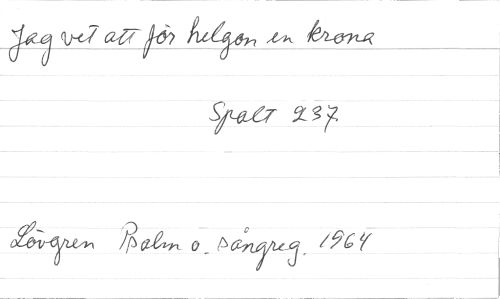 Jag vet att för helgon en krona
Spalt 237.
Lövgren Psalm o. sångreg. 1964